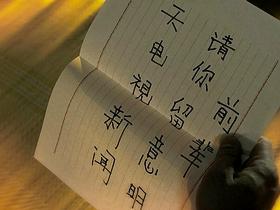 前輩
请你留意明
天电視新闻